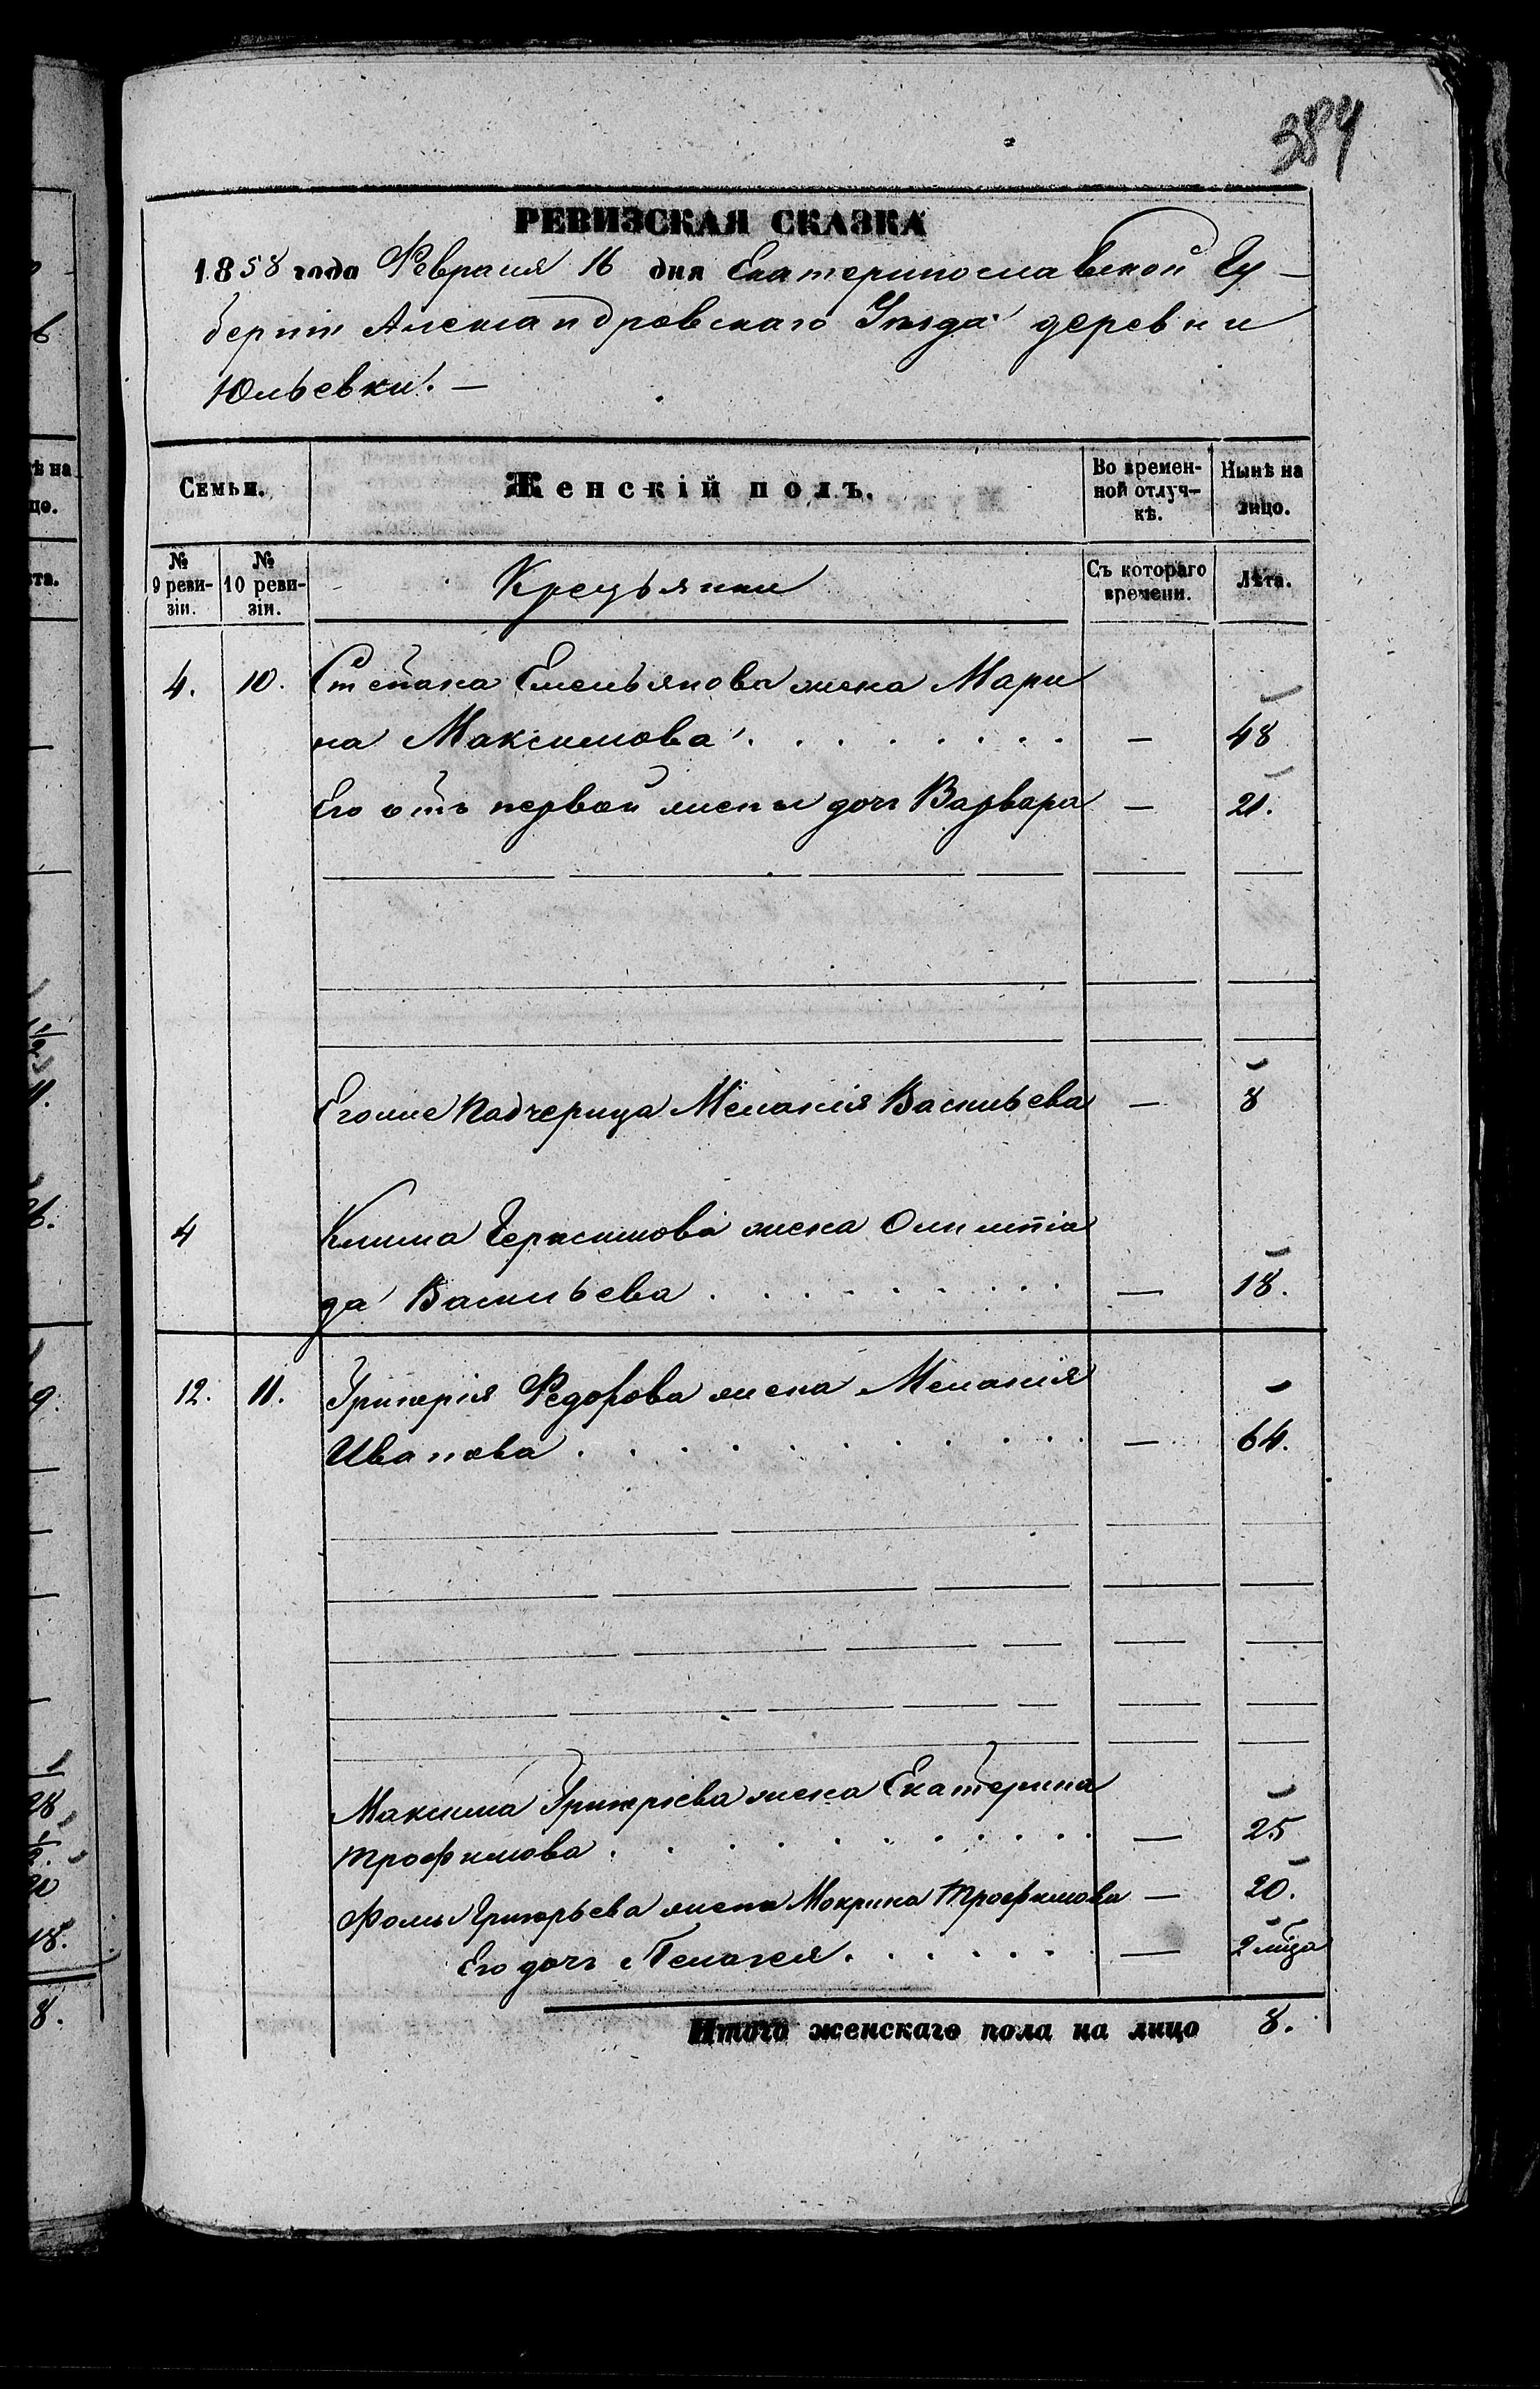 384
РЕВИЗСКАЯ СКАЗКА
1858 года Февраля 16 дня Екатеринославской Гу-
берніи Александровскаго Уѣзда деревни
Юльевки. —
Семьи. Женскій полъ. Во времен-ной отлуч-кѣ. Нынѣ на лицо.
№ 9 реви-зіи. № 10 реви-зіи. Крестьянки Съ котораго времени. Лѣта.
4. 10. Степана Емельянова жена Мари
на Максимова . . . . . . . — 48
Его отъ первой жены дочь Варвара — 21.
Егоже падчерица Меланія Васильева — 8
4 Клима Герасимова жена Олимпіа
да Васильева . . . . . . . — 18.
12. 11. Григорія Федорова жена Меланія
Иванова . . . . . . . . . . — 64.
Максима Григорьева жена Екатерина
Трофимова . . . . . . . . . — 25
Фомы Григорьева жена Мокрина Трофимова — 20.
Его дочь Пелагея . . . . . . — 2 года
Итого женскаго пола на лицо 8.